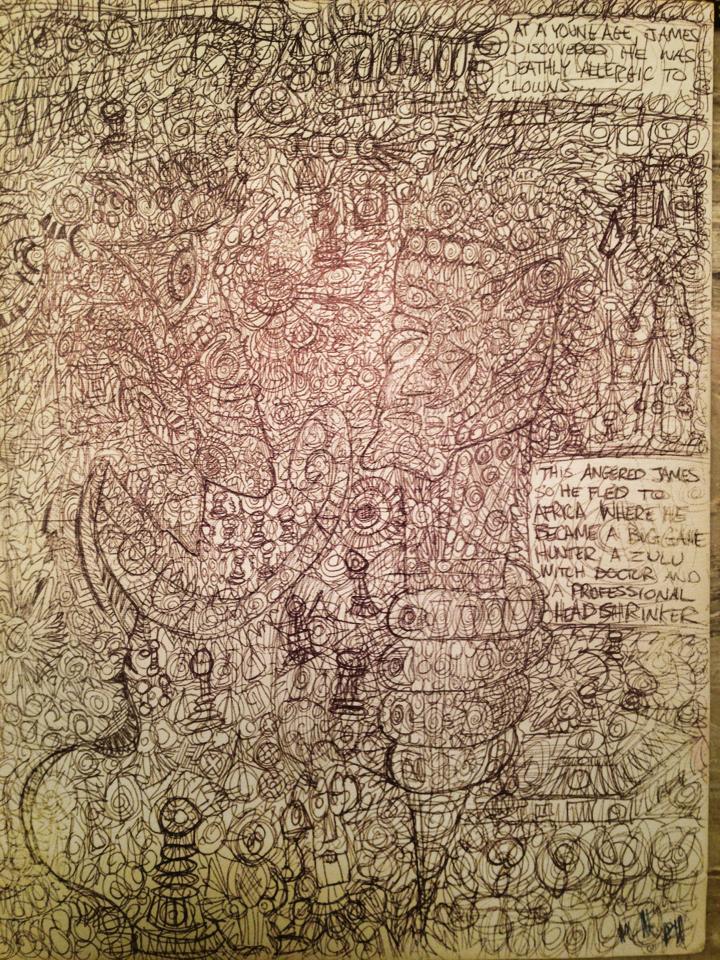 AT A YOUNG AGE, JAMES
DISCOVERED HE WAS
DEATHLY ALLERGIC TO
CLOWNS...
THIS ANGERED JAMES
SO HE FLED TO
AFRICA WHERE HE
BECAME A BIG GAME
HUNTER, A ZULU
WITCH DOCTOR AND
A PROFESSIONAL
HEAD SHRINKER